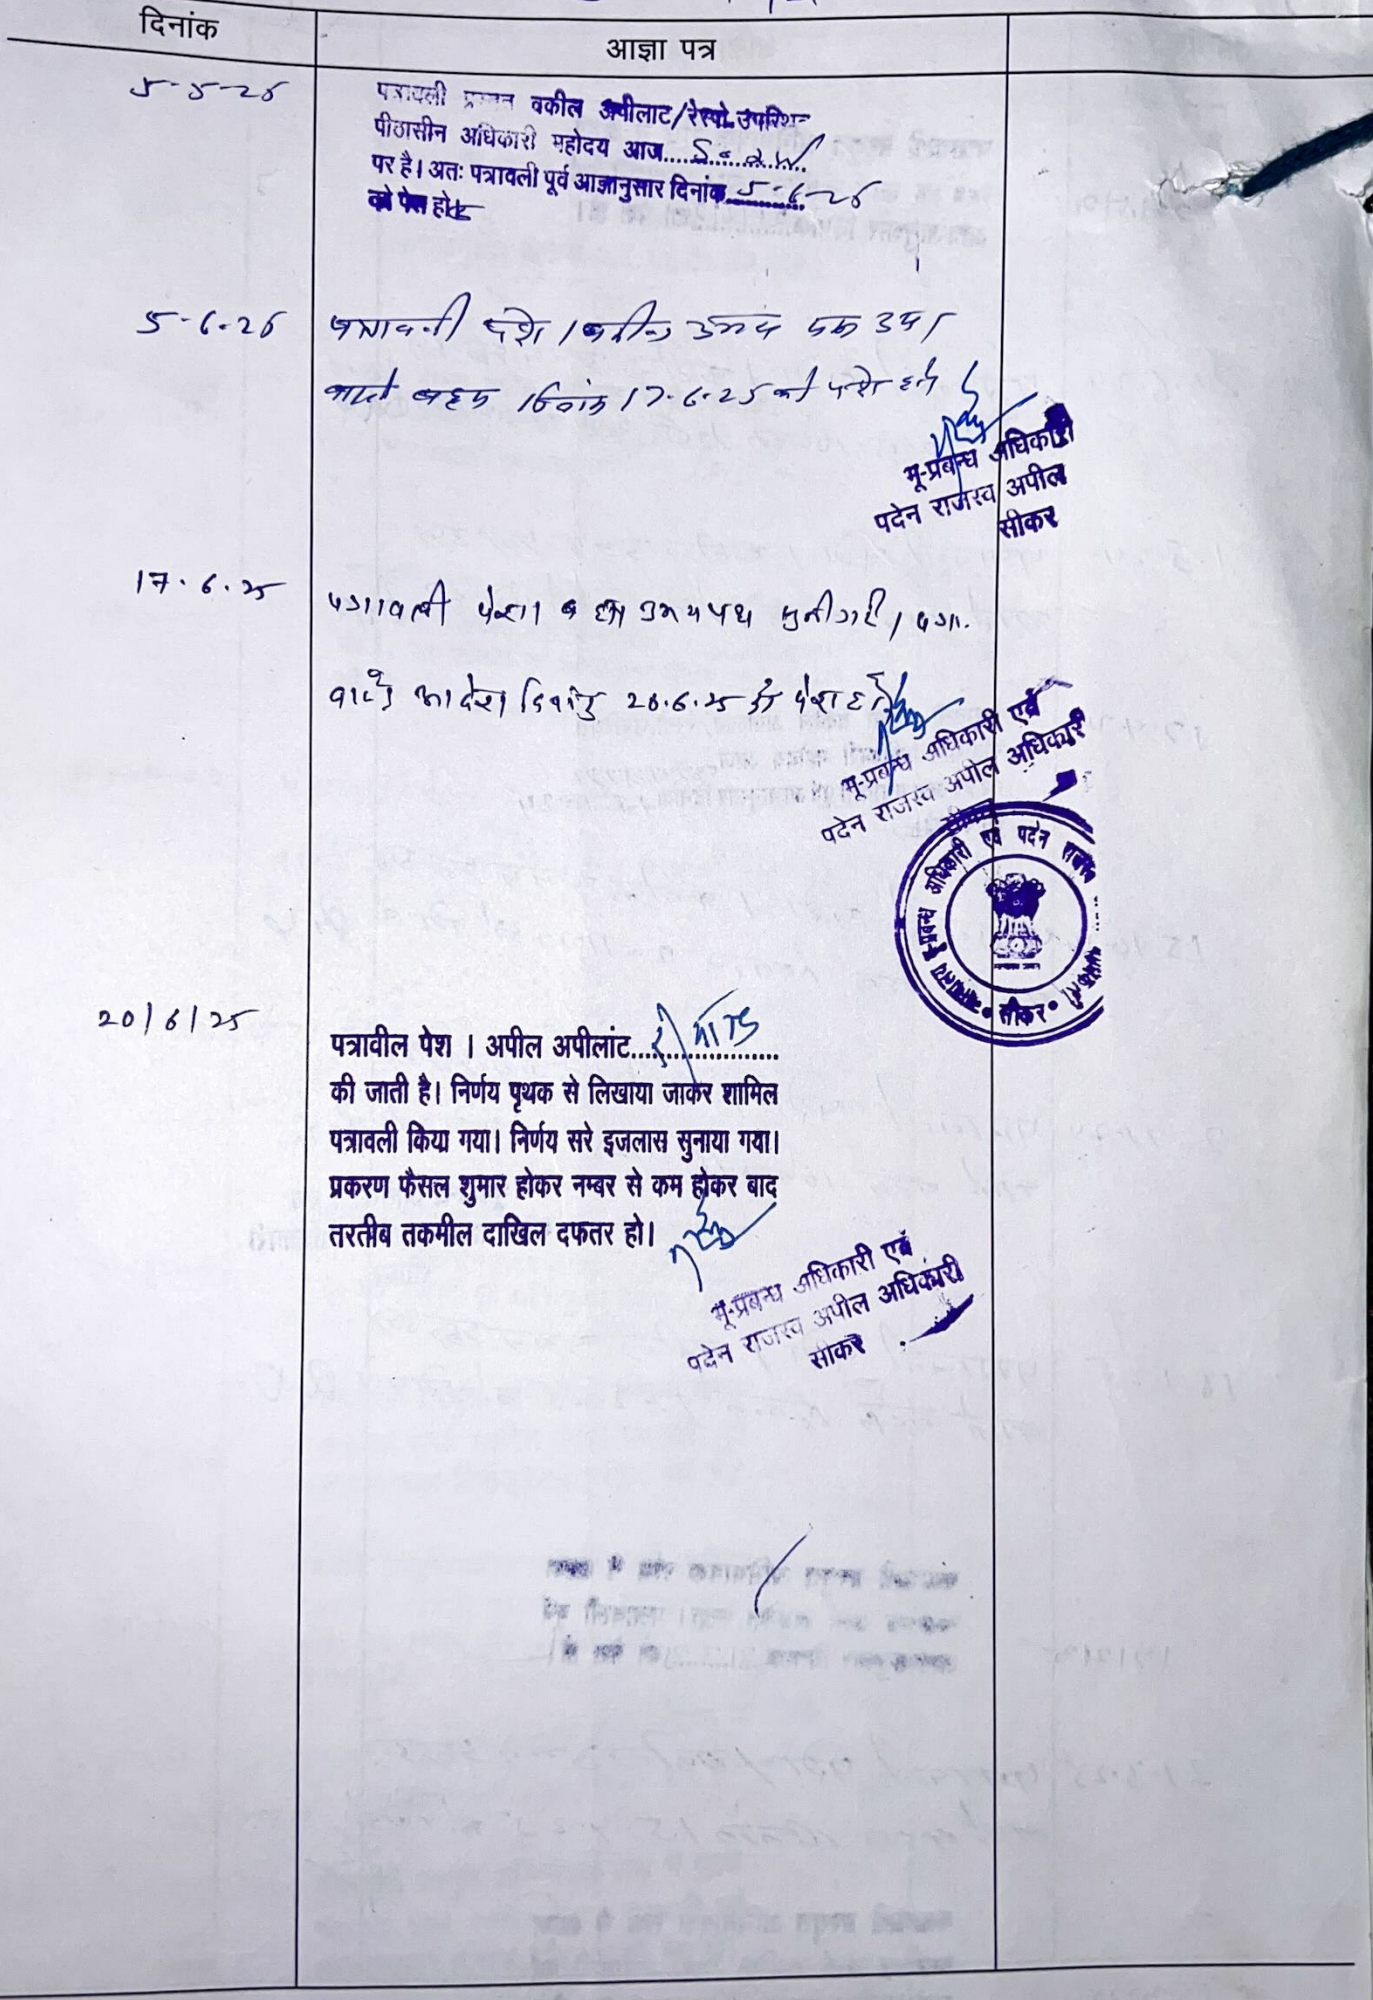 दिनांक
आज्ञा पत्र
5-5-25
पत्रावली प्रस्तुत वकील अपीलाट/रेस्पो. उपस्थित
पीठासीन अधिकारी महोदय आज......
पर है। अतः पत्रावली पूर्व आज्ञानुसार दिनांक 5-6-25
को पेश हो
5-6-25
पत्रावली पेश। वकील उभय पक्ष उप।
वास्ते बहस दिनांक 17-6-25 को पेश हो
भू-प्रबन्ध अधिकारी
पदेन राजस्व अपील
सीकर
17.6.25
पत्रावली पेश। बहस उभयपक्ष सुनी गई। पत्रा.
वास्ते आदेश दिनांक 20.6.25 को पेश हो
भू-प्रबन्ध अधिकारी एवं
पदेन राजस्व अपील अधिकारी
सीकर
भू-प्रबन्ध अधिकारी एवं पदेन राजस्व
सीकर
20/6/25
पत्रावील पेश । अपील अपीलांट...रिमांड...
की जाती है। निर्णय पृथक से लिखाया जाकर शामिल
पत्रावली किया गया। निर्णय सरे इजलास सुनाया गया।
प्रकरण फैसल शुमार होकर नम्बर से कम होकर बाद
तरतीब तकमील दाखिल दफतर हो।
भू-प्रबन्ध अधिकारी एवं
पदेन राजस्व अपील अधिकारी
सीकर